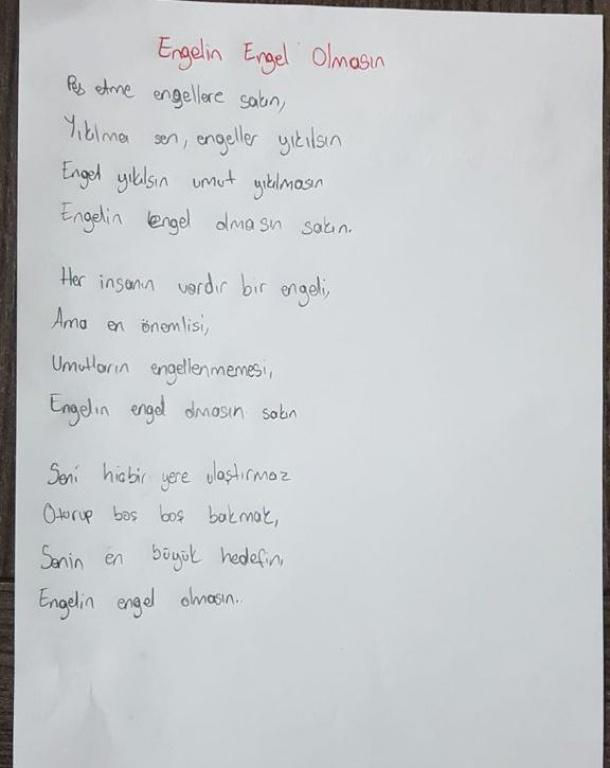 Engelin Engel Olmasın
Pes etme engellere sakın,
Yıkılma sen, engeller yıkılsın
Engel yıkılsın umut yıkılmasın
Engelin engel olmasın sakın.
Her insanın vardır bir engeli,
Ama en önemlisi,
Umutların engellenmemesi,
Engelin engel olmasın sakın
Seni hiçbir yere ulaştırmaz
Oturup boş boş bakmak,
Senin en büyük hedefin,
Engelin engel olmasın..